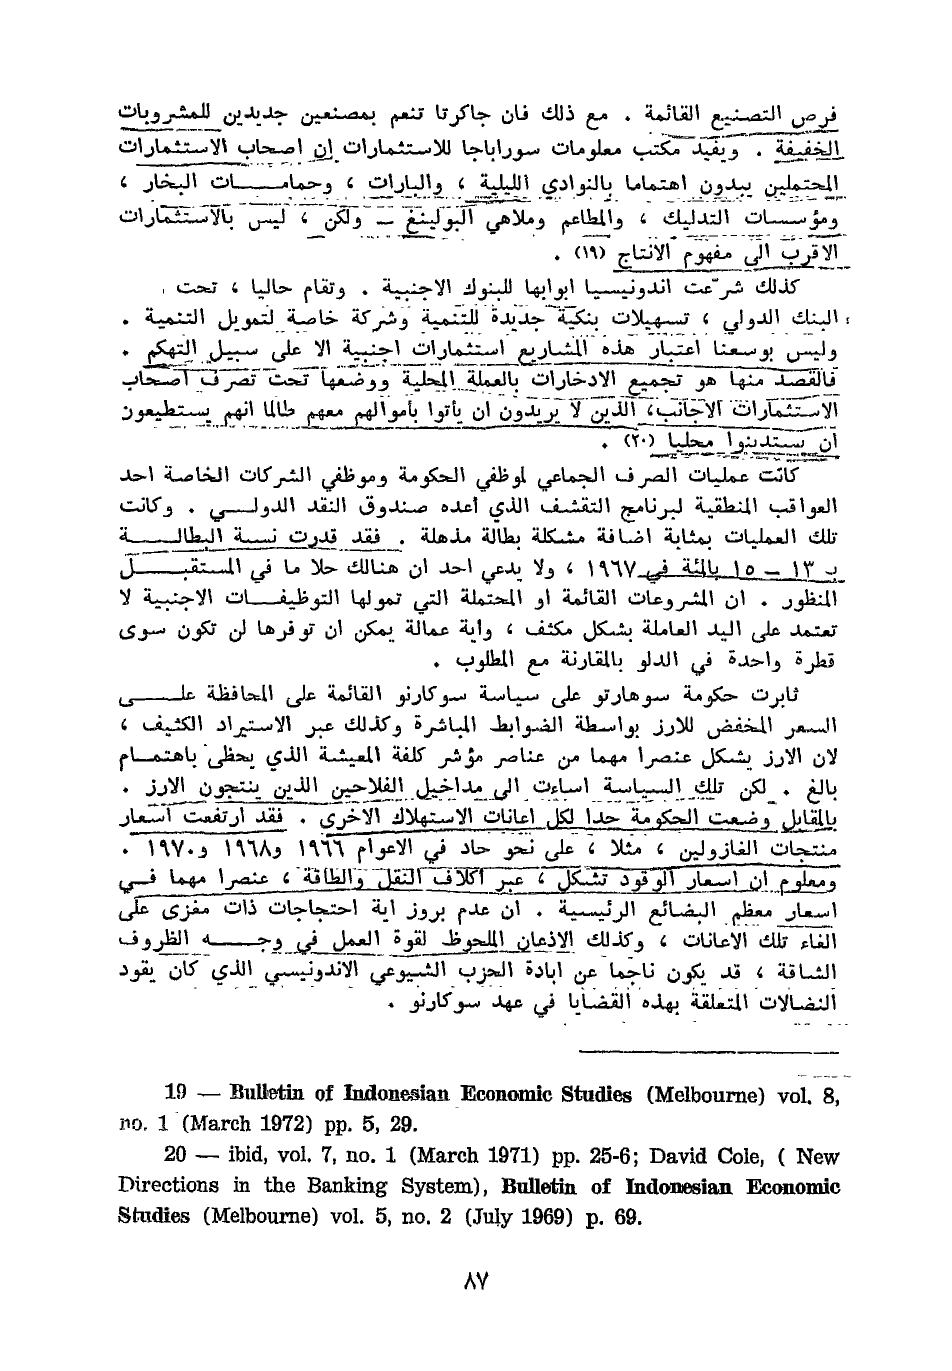 فرص التصنيع القائمة . مع ذلك فان جاكرتا تنعم بمصنعين جديدين للمشروبات
الخفيفة . ويفيد مكتب معلومات سوراباجا للاستثمارات إن اصحاب الاستثمارات
المحتملين يبدون اهتماما بالنوادي الليلية ، والبارات ، وحمامـــات البخار ،
ومؤسسات التدليك ، والمطاعم وملاهي البولينغ ــ ولكن ، ليس بالاستثمارات
الاقرب الى مفهوم الانتاج (١٩) .
كذلك شرّعت اندونيسيا ابوابها للبنوك الاجنبية . وتقام حاليا ، تحت
البنك الدولي ، تسهيلات بنكية جديدة للتنمية وشركة خاصة لتمويل التنمية .
وليس بوسعنا اعتبار هذه المشاريع استثمارات اجنبية الا على سبيل التهكم .
فالقصد منها هو تجميع الادخارات بالعملة المحلية ووضعها تحت تصرف اصحاب
الاستثمارات الاجانب، الذين لا يريدون ان يأتوا بأموالهم معهم طالما انهم يستطيعون
ان يستدينوا محليا (٢٠) .
كانت عمليات الصرف الجماعي لموظفي الحكومة وموظفي الشركات الخاصة احد
العواقب المنطقية لبرنامج التقشف الذي أعده صندوق النقد الدولـــي . وكانت
تلك العمليات بمثابة اضافة مشكلة بطالة مذهلة . فقد قدرت نسبة البطالـــة
بـ ١٣ ــ ١٥ بالمئة في ١٩٦٧ ، ولا يدعي احد ان هنالك حلا ما في المستقبـــل
المنظور . ان المشروعات القائمة او المحتملة التي تمولها التوظيفـــات الاجنبية لا
تعتمد على اليد العاملة بشكل مكثف ، وأية عمالة يمكن ان توفرها لن تكون سوى
قطرة واحدة في الدلو بالمقارنة مع المطلوب .
ثابرت حكومة سوهارتو على سياسة سوكارنو القائمة على المحافظة علـــى
السعر المخفض للارز بواسطة الضوابط المباشرة وكذلك عبر الاستيراد الكثيف ،
لان الارز يشكل عنصرا مهما من عناصر مؤشر كلفة المعيشة الذي يحظى باهتمـــام
بالغ . لكن تلك السياسة اساءت الى مداخيل الفلاحين الذين ينتجون الارز .
بالمقابل وضعت الحكومة حدا لكل اعانات الاستهلاك الاخرى . فقد ارتفعت اسعار
منتجات الغازولين ، مثلا ، على نحو حاد في الاعوام ١٩٦٦ و١٩٦٨ و١٩٧٠ .
ومعلوم ان اسعار الوقود تشكل ، عبر اكلاف النقل والطاقة ، عنصرا مهما فـــي
اسعار معظم البضائع الرئيسية . ان عدم بروز اية احتجاجات ذات مغزى على
الغاء تلك الاعانات ، وكذلك الاذعان الملحوظ لقوة العمل في وجـــه الظروف
الشاقة ، قد يكون ناجما عن ابادة الحزب الشيوعي الاندونيسي الذي كان يقود
النضالات المتعلقة بهذه القضايا في عهد سوكارنو .
19 — Bulletin of Indonesian Economic Studies (Melbourne) vol. 8,
no. 1 (March 1972) pp. 5, 29.
20 — ibid, vol. 7, no. 1 (March 1971) pp. 25-6; David Cole, ( New
Directions in the Banking System), Bulletin of Indonesian Economic
Studies (Melbourne) vol. 5, no. 2 (July 1969) p. 69.
٨٧